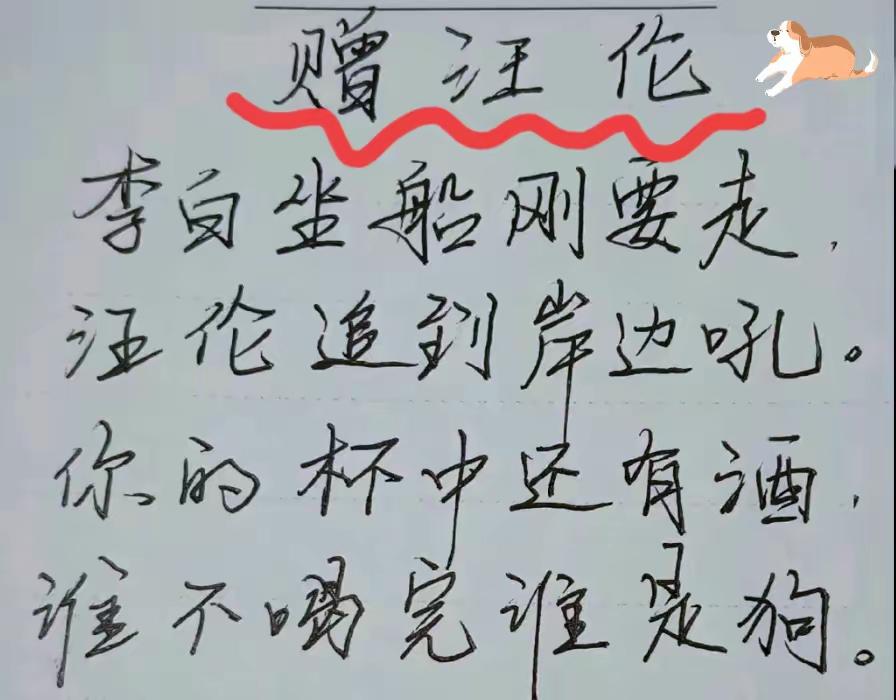 赠汪伦
李白坐船刚要走，
汪伦追到岸边吼。
你的杯中还有酒，
谁不喝完谁是狗。